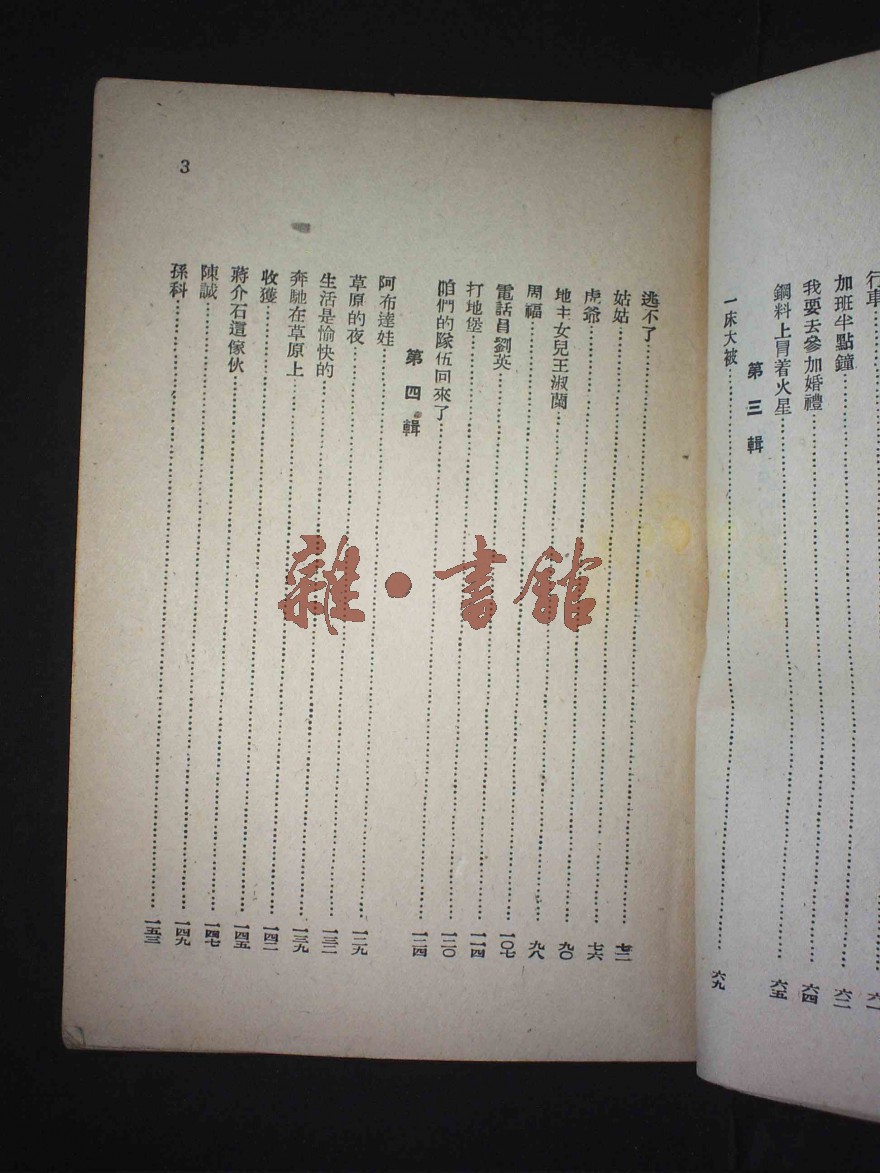 行車……六一
加班半點鐘……六二
我要去參加婚禮……六四
鋼料上冒着火星……六五
第三輯
一床大被……六九
3
逃不了……七二
姑姑……七六
虎爺……九〇
地主女兒王淑蘭……九八
周福……一〇七
電話員劉英……一一四
打地堡……一二〇
咱們的隊伍回來了……一二四
第四輯
阿布達娃……一二九
草原的夜……一三二
生活是愉快的……一三九
奔馳在草原上……一四二
收獲……一四五
蔣介石這傢伙……一四七
陳誠……一四九
孫科……一五三
雜·書館